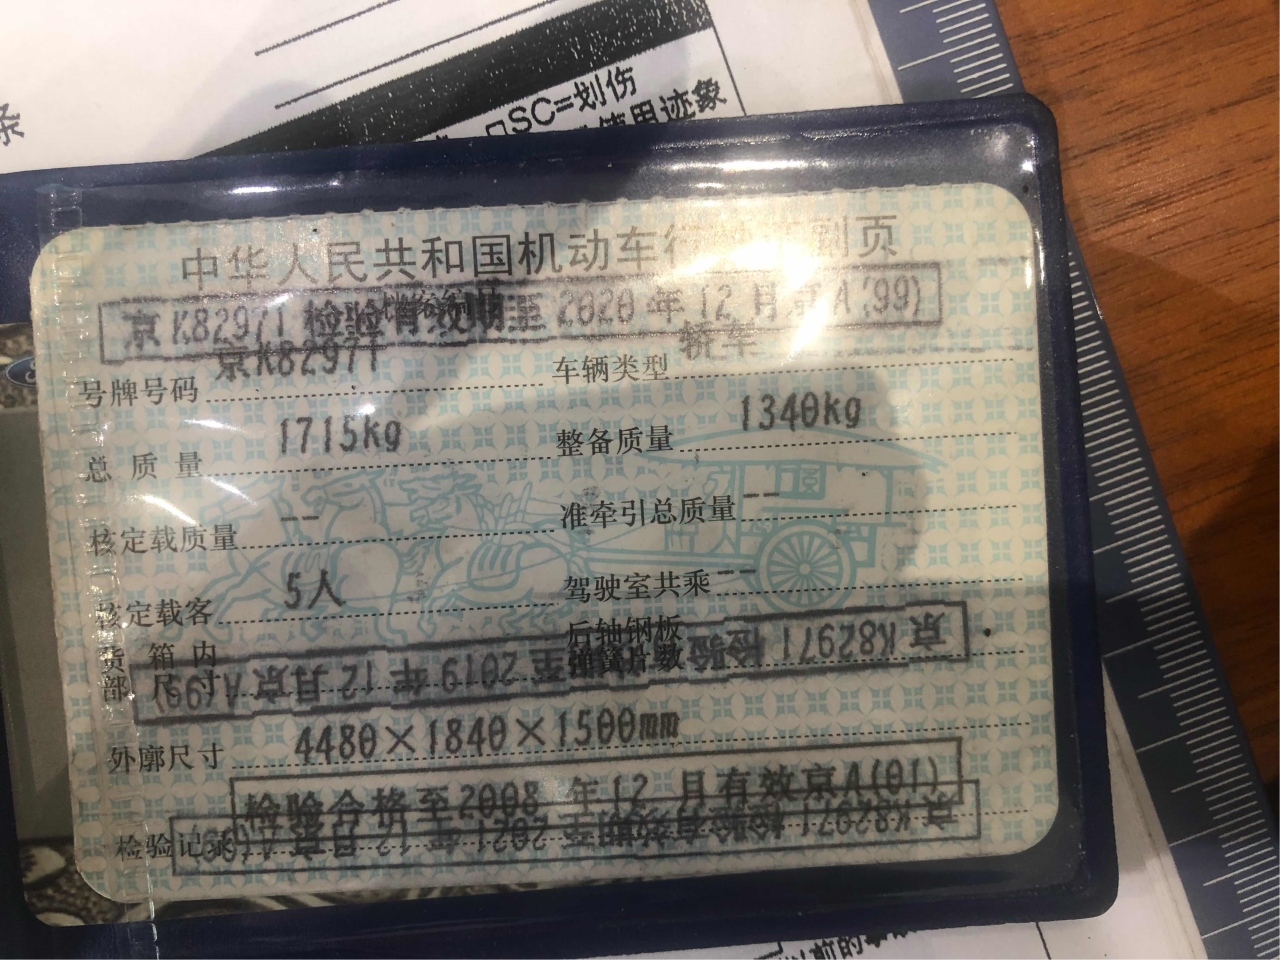 条
□SC=划伤
使用迹象
中华人民共和国机动车行 副页
京K82971 检验有效期至 2020 年 12 月 京A(99)
号牌号码 京K82971 车辆类型 轿车
总 质 量 1715kg 整备质量 1340kg
核定载质量 -- 准牵引总质量 --
核定载客 5人 驾驶室共乘 --
货 箱 内
部 尺 寸
后轴钢板
弹簧片数
京K82971 检验 至 2019 年 12 月 京A(99)
外廓尺寸 4480×1840×1500mm
检验合格至2008 年 12 月有效京A(01)
检验记录
京K82971 检验有效期至 2021 年 12 月 京A
以前的